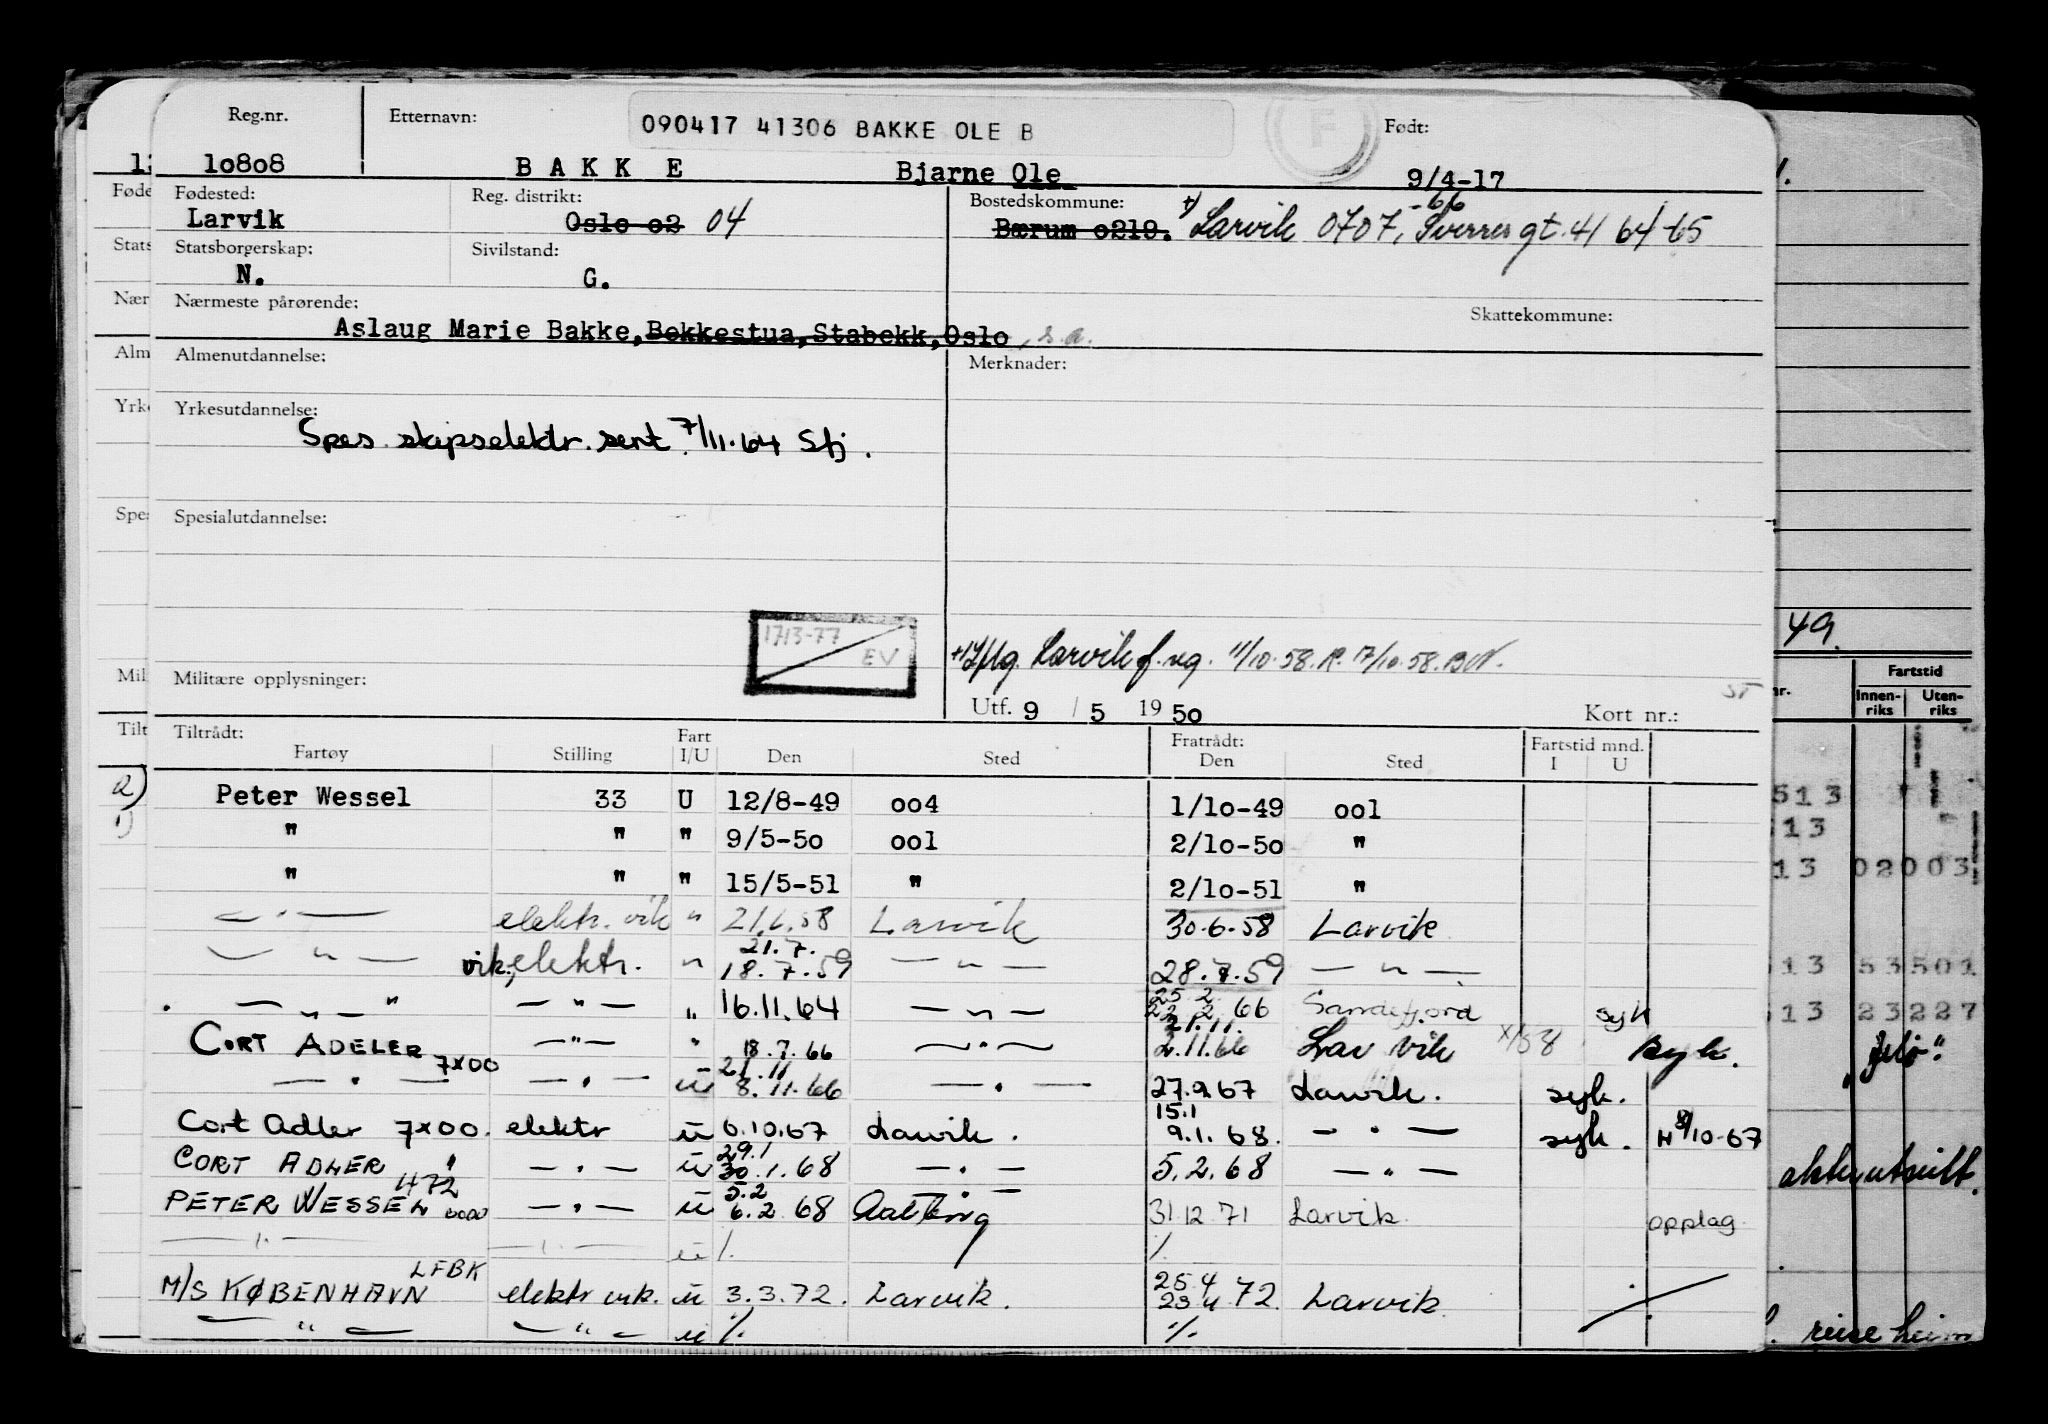 Reg.nr. Etternavn: 090417 41306 BAKKE OLE B Født:
10808 B A K K E Bjarne Ole 9/4-17
Fødested: Reg. distrikt: Bostedskommune:
Larvik Oslo o2 04 Bærum o219. +) Larvik 0707, Sverres gt. 41 64-65 -66
Statsborgerskap: Sivilstand:
N. G.
Nærmeste pårørende: Skattekommune:
Aslaug Marie Bakke, Bekkestua, Stabekk, Oslo, s.a.
Almenutdannelse: Merknader:
Yrkesutdannelse:
Spes. skipselektr. sert. 7/11.64 Sfj.
Spesialutdannelse:
1713-77
EV
Larvik f. ng. 11/10.58. R. 17/10.58. BN.
Militære opplysninger:
Utf. 9 / 5 19 50 Kort nr.:
Tiltrådt: Fart Fratrådt: Fartstid mnd.
Fartøy Stilling I/U Den Sted Den Sted I U
Peter Wessel 33 U 12/8-49 oo4 1/10-49 oo1
" " " 9/5-50 oo1 2/10-50 "
" " " 15/5-51 " 2/10-51 "
— " — elektr. vik " 21.6.58 Larvik 30.6.58 Larvik
— " — vik. elektr. " 21.7. 18.7.59 — " — 28.7.59 — " —
— " — — " — " 16.11.64 — " — 25.2 22.2.66 Sandefjord syk
CORT ADELER — " — " 18.7.66 — " — 21.11. 2.11.66 Larvik syk.
— " — 7x00 — " — u 21.11 8.11.66 — " — 27.9.67 Larvik. syk.
Cort Adler 7x00. elektr u 6.10.67 Larvik. 15.1 9.1.68. — " — syk. H 8/10-67
CORT ADLER " — " — u 29.1 30.1.68 — " — 5.2.68 — " —
PETER WESSEL 472 0000 — " — u 5.2 6.2.68 Aalborg 31.12.71 Larvik opplag
— " — — " — u %. %.
M/S KØBENHAVN LFBK elektr vik. u 3.3.72. Larvik. 25.4 23.4.72. Larvik
— " — — " — u %. %.
49.
Fartstid
Innenriks Utenriks
513
13
13 02003
13 53501
13 23227
reise heim